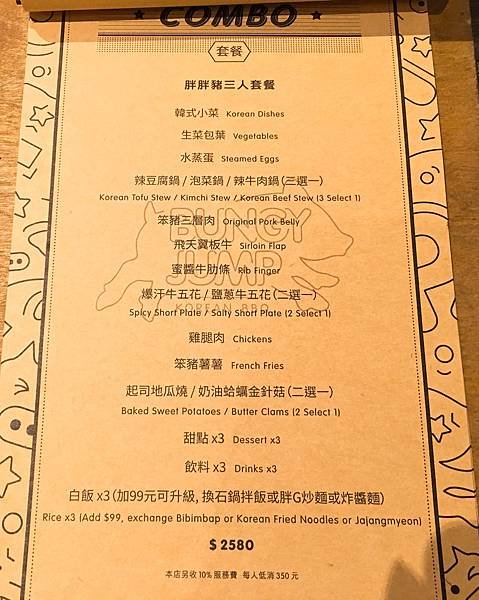 COMBO
套餐
胖胖豬三人套餐
韓式小菜 Korean Dishes
生菜包葉 Vegetables
水蒸蛋 Steamed Eggs
辣豆腐鍋 / 泡菜鍋 / 辣牛肉鍋 (三選一)
Korean Tofu Stew / Kimchi Stew / Korean Beef Stew (3 Select 1)
笨豬三層肉 Original Pork Belly
BUNGY
飛天翼板牛 Sirloin Flap
JUMP
蜜醬牛肋條 Rib Finger
爆汗牛五花 / 鹽蔥牛五花 (二選一)
KOREAN BBQ
Spicy Short Plate / Salty Short Plate (2 Select 1)
雞腿肉 Chickens
笨豬薯薯 French Fries
起司地瓜燒 / 奶油蛤蠣金針菇 (二選一)
Baked Sweet Potatoes / Butter Clams (2 Select 1)
甜點 x3 Dessert x3
飲料 x3 Drinks x3
白飯 x3 (加99元可升級, 換石鍋拌飯或胖G炒麵或炸醬麵)
Rice x3 (Add $99, exchange Bibimbap or Korean Fried Noodles or Jajangmyeon)
$ 2580
本店另收 10% 服務費 每人低消 350 元